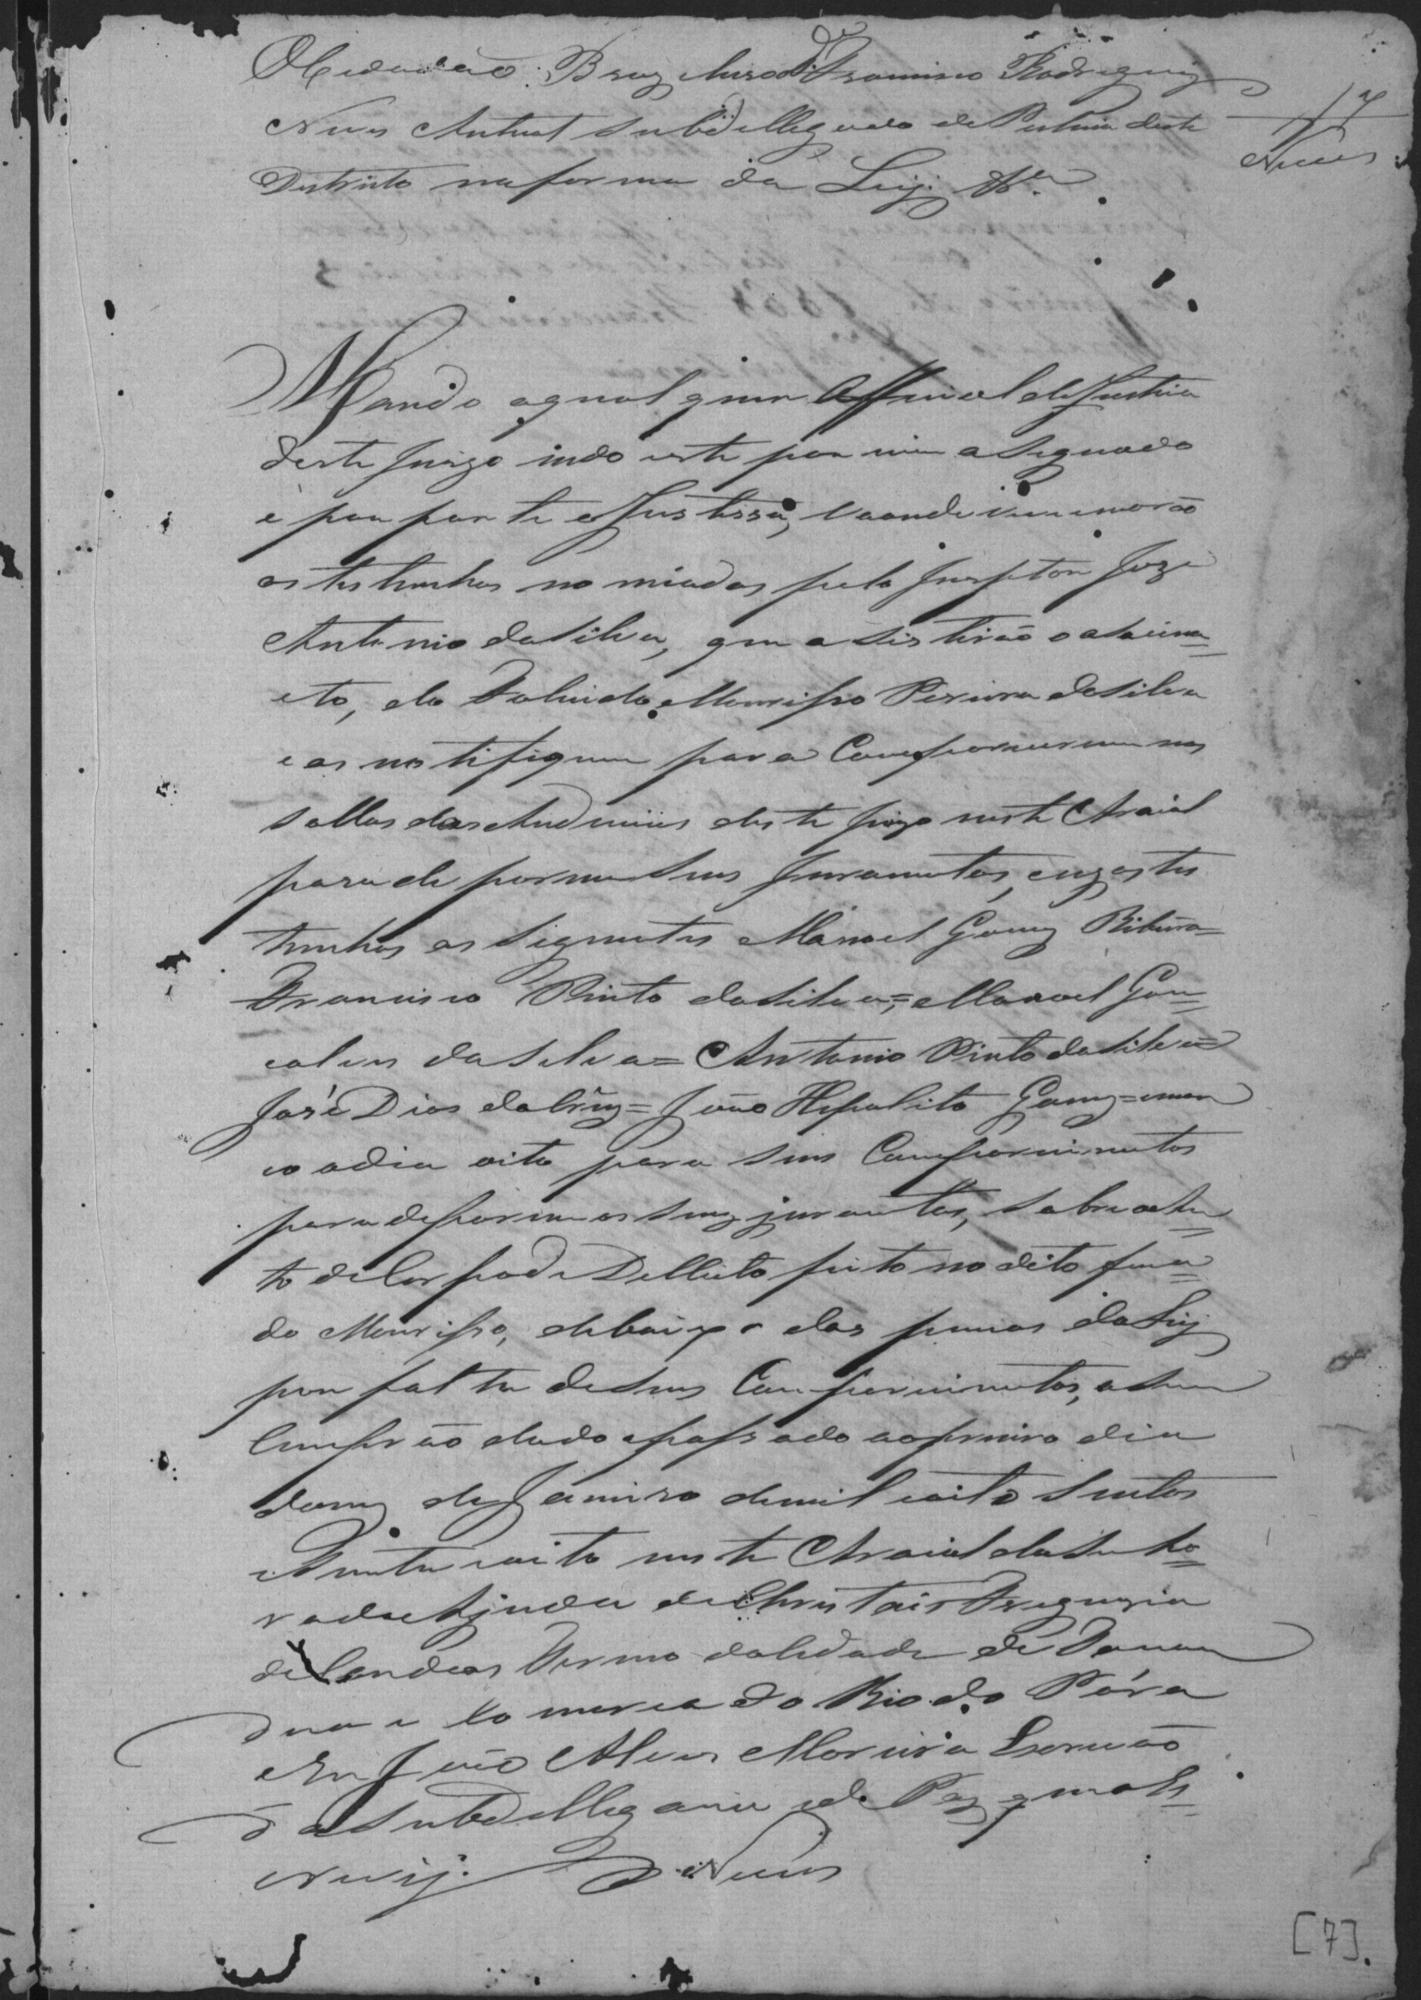 O Cidadão Braz. leiro Francisco Rodrigues
Neves Actual subdellegado de Policia deste
Districto na forma da Ley. &ª
17
Neves
Mando a qual quer Official de Justiça
deste Juizo indo este por mim asignado
e por parte e Justissa, vaonde morão
as testunhas no miadas pelo Inspetor Joze
Antonio da Silva, que asistirão o asacina=
eto, do Falicido Mauricio Pereira da Silva
e as notifique para Comparecerem nas
sallas das Audiencias deste juizo neste Araial
para de porem seus Juramentos, cujas tes
tunhas as siguntes Manoel Gomes Ribeiro=
Francisco Pinto da Silva,= Manoel Gon=
calves da Silva= Antonio Pinto da Silva=
José Dias da Cruz= João Hepolito Gomes= mar
co o dia oito para seus Comparecimentos
para deporem os seus juramentos, sobre o au=
to de Corpo de Dellicto feito no dito fina=
do Mauricio, debaixo das penas da Ley
por falta de seus Comparecimentos, asim
Cumprão dado e passado ao primeiro dia
do mez de Janeiro de mil e oito sentos
setenta e oito neste Araial da Senho=
ra da Ajuda de Christais Freguezia
de Candeas Termo da Cidade de Taman
dua e Comarca do Rio do Pára
Eu João Alves Moreira Escrivão
da Subdellegacia e de Paz q mal=
escrevy. Neves
[7].